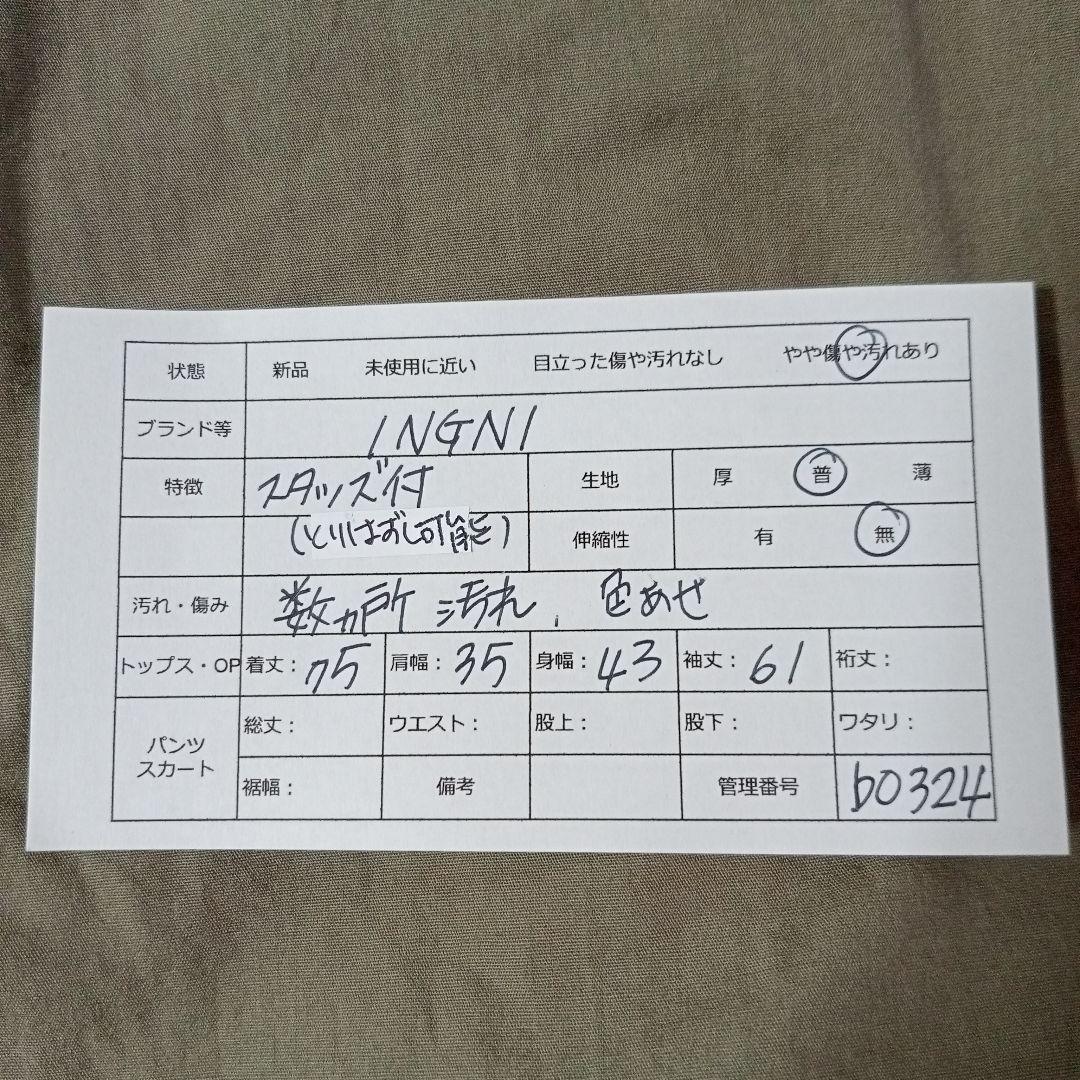 状態 新品 未使用に近い 目立った傷や汚れなし やや傷や汚れあり
ブランド等 INGNI
特徴 スタッズ付 生地 厚 普 薄
(とりはずし可能) 伸縮性 有 無
汚れ・傷み 数ヵ所 汚れ、色あせ
トップス・OP 着丈: 75 肩幅: 35 身幅: 43 袖丈: 61 裄丈:
パンツ スカート 総丈: ウエスト: 股上: 股下: ワタリ:
裾幅: 備考 管理番号 b0324